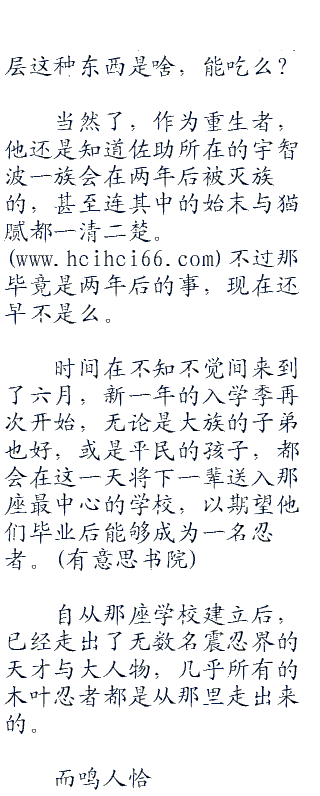 层这种东西是啥，能吃么？
当然了，作为重生者，
他还是知道佐助所在的宇智
波一族会在两年后被灭族
的，甚至连其中的始末与猫
腻都一清二楚。
(www.hcihci66.com)不过那
毕竟是两年后的事，现在还
早不是么。
时间在不知不觉间来到
了六月，新一年的入学季再
次开始，无论是大族的子弟
也好，或是平民的孩子，都
会在这一天将下一辈送入那
座最中心的学校，以期望他
们毕业后能够成为一名忍
者。(有意思书院)
自从那座学校建立后，
已经走出了无数名震忍界的
天才与大人物，几乎所有的
木叶忍者都是从那里走出来
的。
而鸣人恰